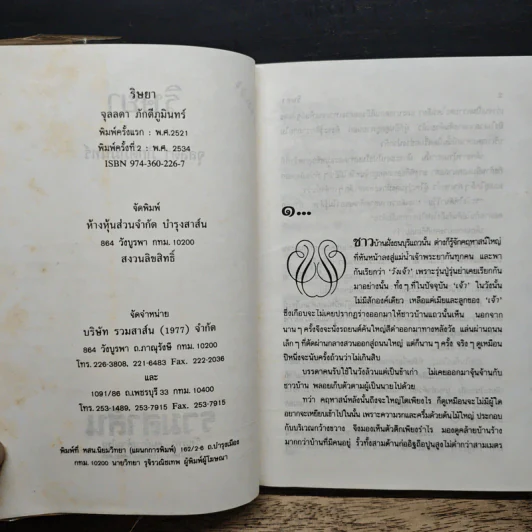 ริษยา
จุลลดา ภักดีภูมินทร์
พิมพ์ครั้งแรก : พ.ศ.2521
พิมพ์ครั้งที่ 2 : พ.ศ. 2534
ISBN 974-360-226-7
จัดพิมพ์
ห้างหุ้นส่วนจำกัด บำรุงสาส์น
864 วังบูรพา กทม. 10200
สงวนลิขสิทธิ์
จัดจำหน่าย
บริษัท รวมสาส์น (1977) จำกัด
864 วังบูรพา ถ.ภาณุรังษี กทม. 10200
โทร. 226-3808, 221-6483 Fax. 222-2036
และ
1091/86 ถ.เพชรบุรี 33 กทม. 10400
โทร. 253-1489, 253-7915 Fax. 253-7915
พิมพ์ที่ หสน.นิยมวิทยา (แผนกการพิมพ์) 162/2-6 ถ.บำรุงเมือง
กทม. 10200 นายวิทยา รุจิรวณิชเทพ ผู้พิมพ์ผู้โฆษณา
๑...
ชาวบ้านฝั่งธนบุรีแถวนั้น ต่างก็รู้จักคฤหาสน์ใหญ่
ที่หันหน้าลงสู่แม่น้ำเจ้าพระยากันทุกคน และพา
กันเรียกว่า ‘วังเจ้า’ เพราะรุ่นปู่รุ่นย่าเคยเรียกกัน
มาอย่างนั้น ทั้งๆ ที่ในปัจจุบัน ‘เจ้า’ ในวังนั้น
ไม่มีสักองค์เดียว เหลือแต่เมียและลูกของ ‘เจ้า’
ซึ่งเกือบจะไม่เคยปรากฏร่างออกมาให้ชาวบ้านแถวนั้นเห็น นอกจาก
นานๆ ครั้งจึงจะนั่งรถยนต์คันใหญ่สีดำออกมาทางหลังวัง แล่นผ่านถนน
เล็กๆ ที่ตัดผ่านกลางสวนออกสู่ถนนใหญ่ แต่ก็นานๆ ครั้ง จริงๆ ดูเหมือน
ปีหนึ่งจะนับครั้งถ้วนว่าไม่เกินสิบ
บรรดาคนรับใช้ในวังล้วนแต่เป็นข้าเก่า ไม่เคยออกมาจุ้นจ้านกับ
ชาวบ้าน พลอยเก็บตัวตามผู้เป็นนายไปด้วย
ทว่า คฤหาสน์หลังนั้นถึงจะใหญ่โตเพียงไร ก็ดูเหมือนจะไม่มีผู้ใด
อยากจะเหยียบเข้าไปในนั้น เพราะความรกและครึ้มด้วยต้นไม้ใหญ่ ประกอบ
กับบริเวณกว้างขวาง จึงมองเห็นตัวตึกเพียงรำไร มองดูคล้ายบ้านร้าง
มากกว่าบ้านที่มีคนอยู่ รั้วทั้งสามด้านก่ออิฐถือปูนสูงไม่ต่ำกว่าสามเมตร